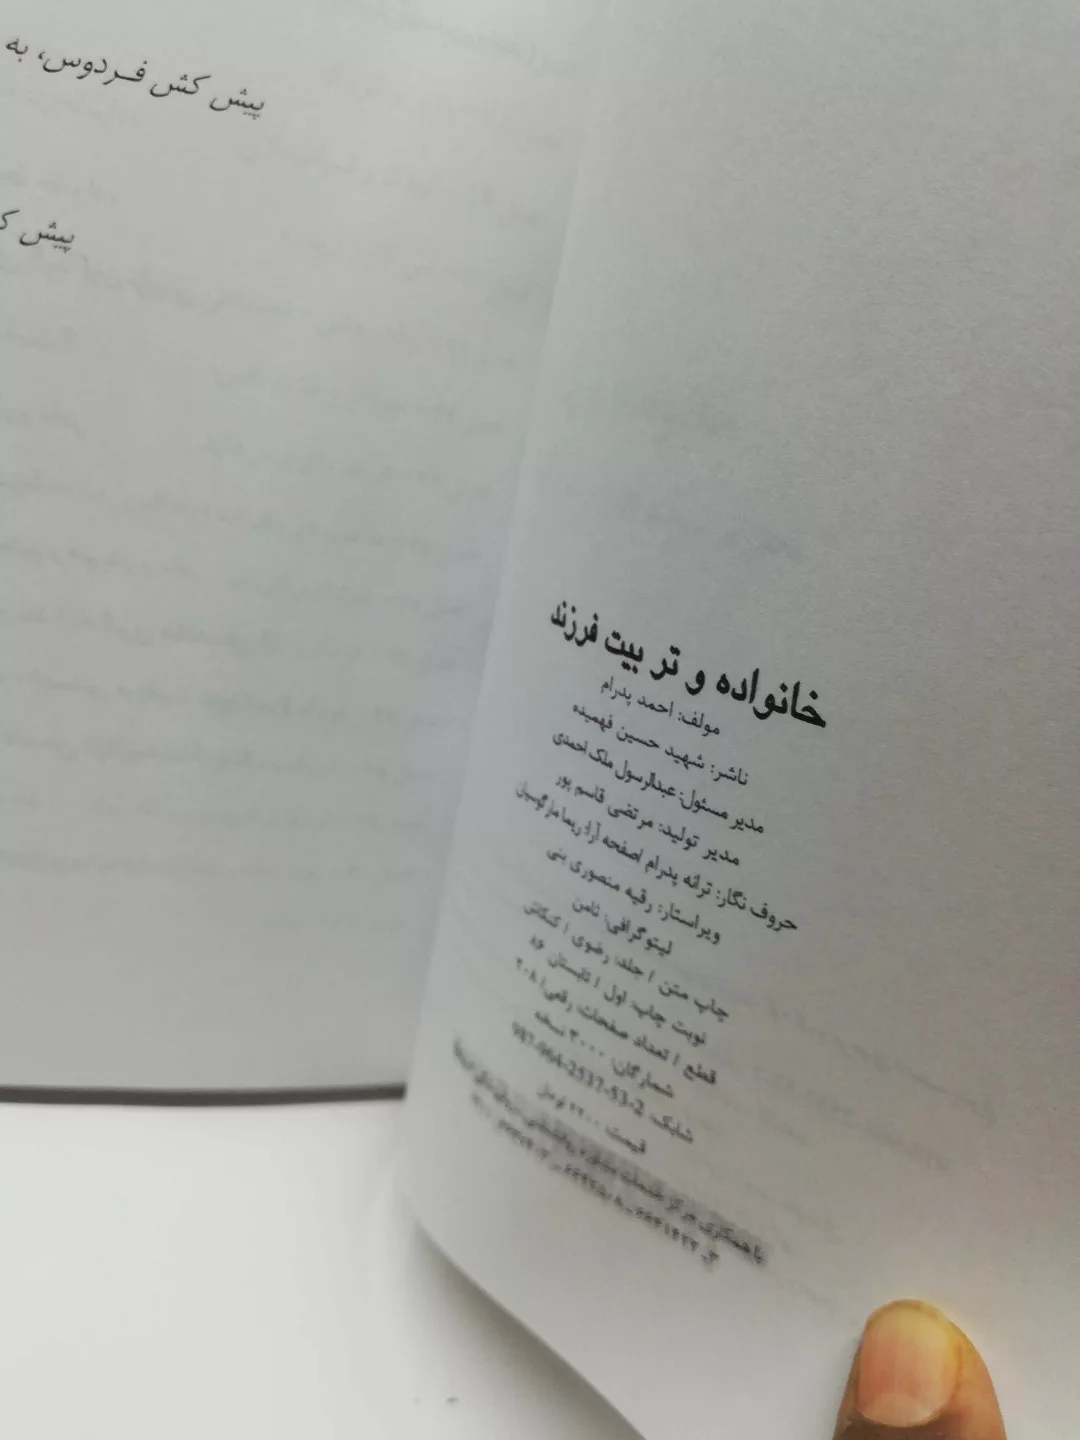 خانواده و تر بیت فرزند
مولف: احمد پدرام
ناشر: شهید حسین فهمیده
مدیر مسئول: عبدالرسول ملک احمدی
مدیر تولید: مرتضی قاسم پور
حروف نگار: ترانه پدرام /صفحه آرا: ریما مارگوسیان
ویراستار: رقیه منصوری بنی
لیتوگرافی: ثامن
چاپ متن / جلد: رضوی / کنکاش
نوبت چاپ: اول / تابستان ۸۶
قطع / تعداد صفحات: رقعی/ ۲۰۸
شمارگان: ۳۰۰۰ نسخه
شابک: 987-964-2537-53-2
قیمت: ۲۲۰۰ تومان
با همکاری مرکز خدمات مشاوره
پیش کش فـردوس، به
پیش